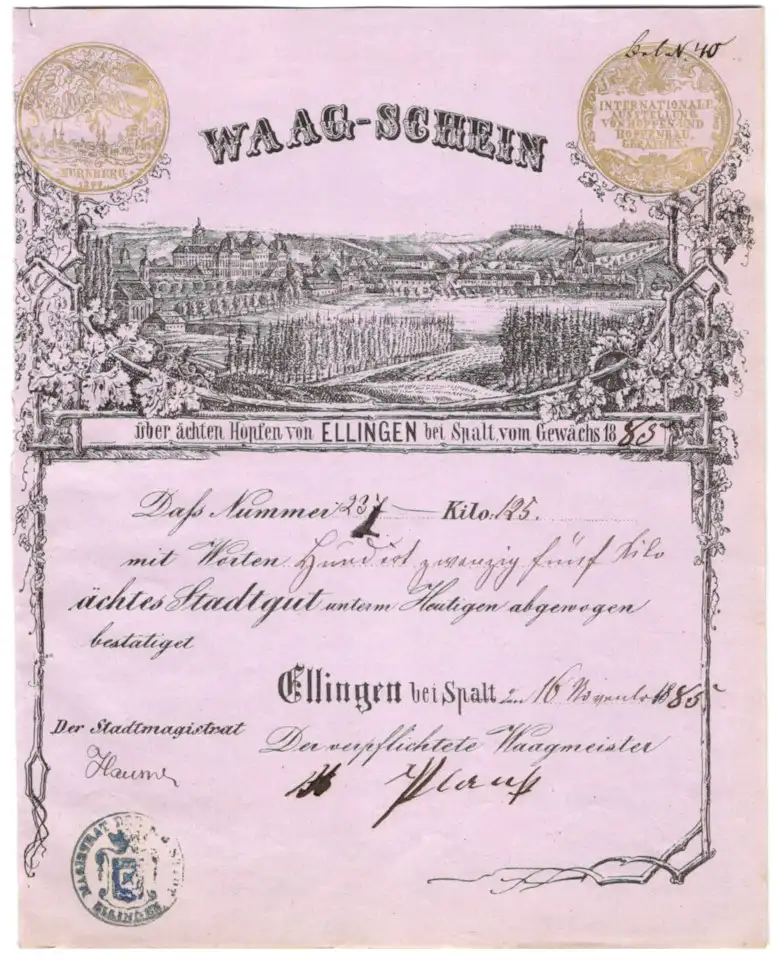 N. 40
NÜRNBERG
1877.
WAAG-SCHEIN
INTERNATIONALE
AUSTELLUNG
VON HOPFEN UND
HOPFENBAU
GERÄTHEN.
über ächten Hopfen von ELLINGEN bei Spalt, vom Gewächs 1885
Daß Nummer 237 Kilo: 125.
mit Worten Hundert zwanzig fünf Kilo
ächtes Stadtgut unterm Heutigen abgewogen
bestätiget
Ellingen bei Spalt den 16 November 1885
Der Stadtmagistrat
Der verpflichtete Waagmeister
MAGISTRAT DER
ELLINGEN